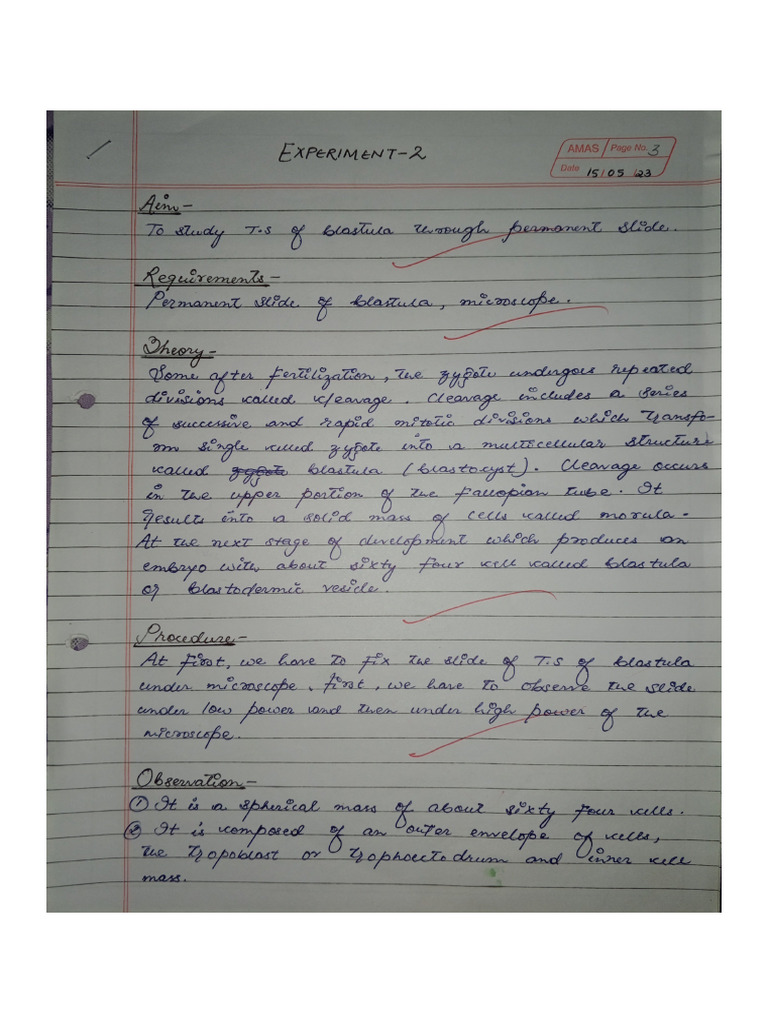 EXPERIMENT-2
AMAS Page No. 3
Date 15/05/23
Aim-
To study T.S of blastula through permanent slide.
Requirements-
Permanent slide of blastula, microscope.
Theory-
Some after fertilization, the zygote undergoes repeated
divisions called cleavage. Cleavage includes a series
of successive and rapid mitotic divisions which transfo-
rm single celled zygote into a multicellular structure
called zygote blastula (blastocyst). Cleavage occurs
in the upper portion of the Fallopian tube. It
results into a solid mass of cells called morula.
At the next stage of development which produces an
embryo with about sixty four cell called blastula
or blastodermic vesicle.
Procedure-
At first, we have to fix the slide of T.S of blastula
under microscope. first, we have to observe the slide
under low power and then under high power of the
microscope.
Observation-
① It is a spherical mass of about sixty four cells.
② It is composed of an outer envelope of cells,
the tropoblast or trophoectodrum and inner cell
mass.